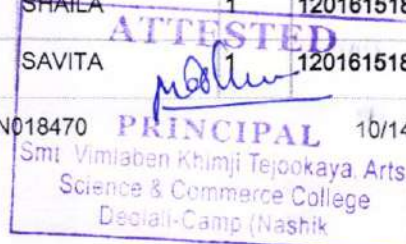 SHAILA 1 120161518
ATTESTED
SAVITA 1 120161518
N018470 PRINCIPAL 10/14
Smt. Vimlaben Khimji Tejookaya, Arts
Science & Commerce College
Deolali-Camp (Nashik